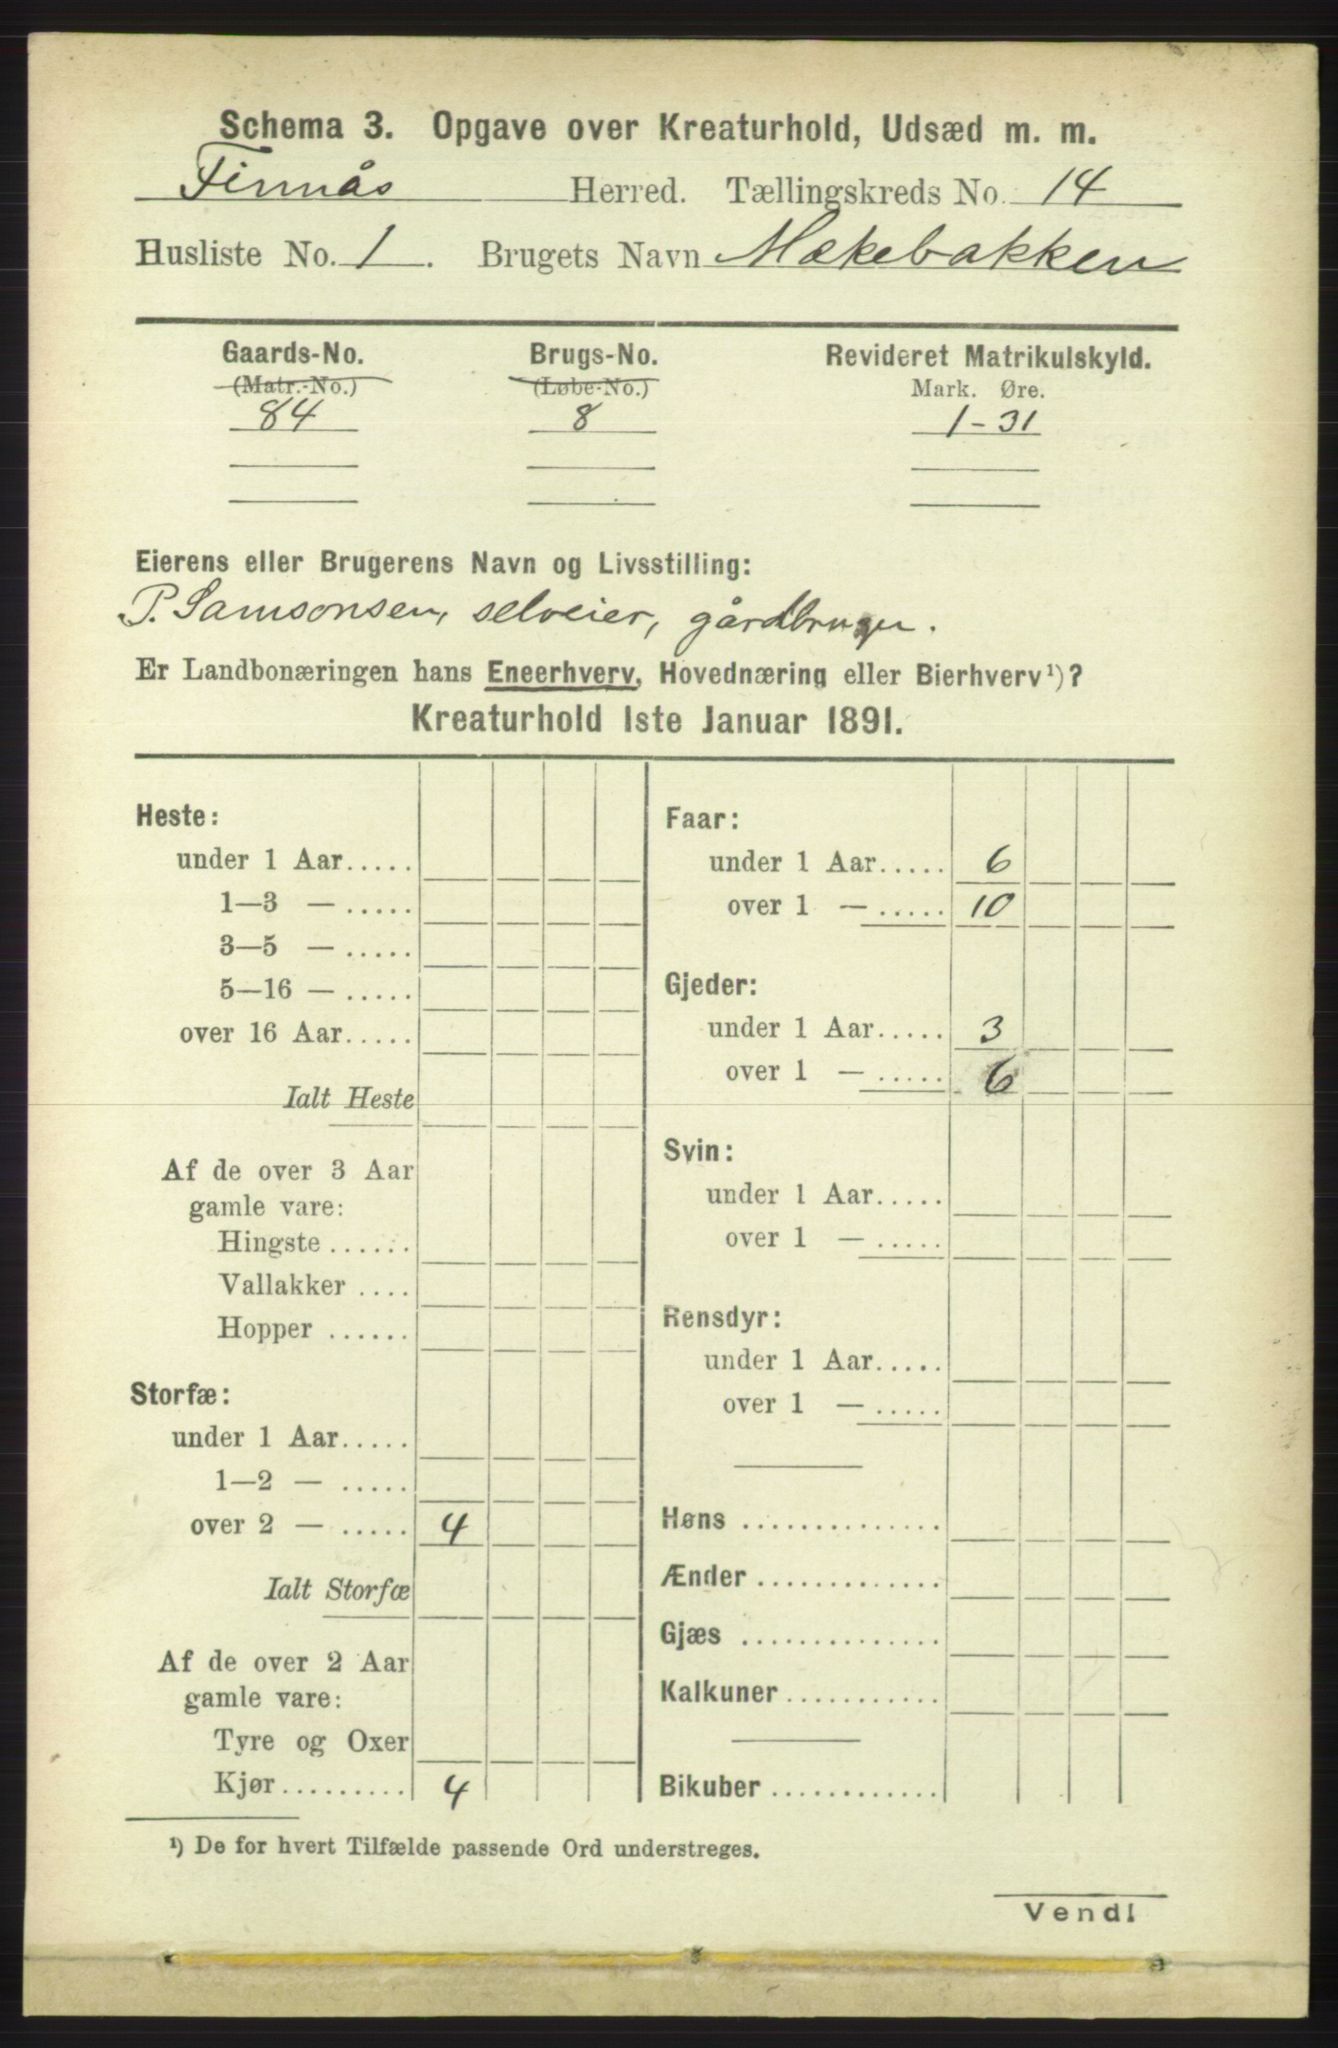 Schema 3. Opgave over Kreaturhold, Udsæd m. m.
Finnås Herred. Tællingskreds No. 14
Husliste No. 1. Brugets Navn Mækebakken
Gaards-No. Brugs-No. Revideret Matrikulskyld.
(Matr.-No.) (Løbe-No.) Mark. Øre.
84 8 1-31
Eierens eller Brugerens Navn og Livsstilling:
P. Samsonsen, selveier, gårdbruger.
Er Landbonæringen hans Eneerhverv, Hovednæring eller Bierhverv¹)?
Kreaturhold 1ste Januar 1891.
Heste:
under 1 Aar.....
1—3 — .....
3—5 — .....
5—16 — .....
over 16 Aar.....
Ialt Heste
Af de over 3 Aar
gamle vare:
Hingste ......
Vallakker ....
Hopper ......
Storfæ:
under 1 Aar.....
1—2 — .....
over 2 — ..... 4
Ialt Storfæ
Af de over 2 Aar
gamle vare:
Tyre og Oxer
Kjør......... 4
Faar:
under 1 Aar..... 6
over 1 — ..... 10
Gjeder:
under 1 Aar..... 3
over 1 — ..... 6
Svin:
under 1 Aar.....
over 1 — .....
Rensdyr:
under 1 Aar.....
over 1 — .....
Høns ..............
Ænder .............
Gjæs ..............
Kalkuner...........
Bikuber ............
¹) De for hvert Tilfælde passende Ord understreges.
Vend!